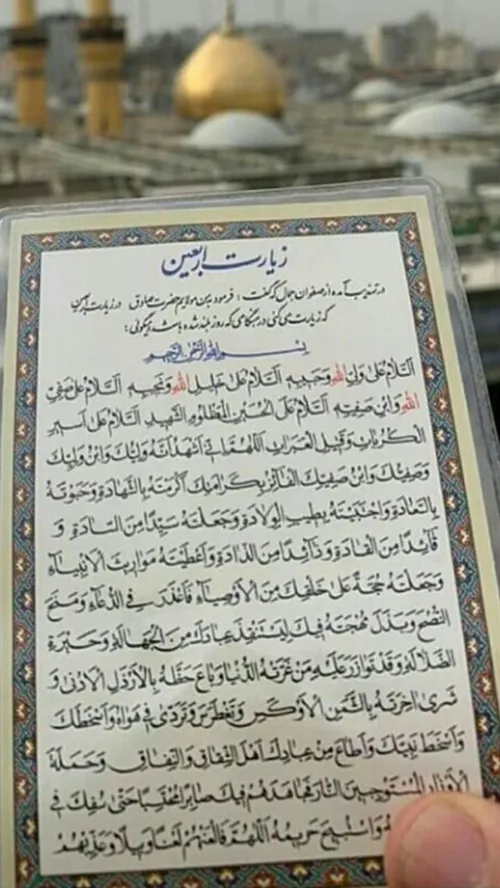 زیارت اربعین
در تهذیب آمده از صفوان جمال که گفت: فرمود به من مولایم حضرت صادق در زیارت اربعین
که زیارت می کنی در هنگامی که روز بلند شده باشد و میگوئی:
بسم الله الرحمن الرحیم
اَلسَّلامُ عَلی وَلِیِّ اللهِ وَحَبیبِهِ اَلسَّلامُ عَلی خَلیلِ اللهِ وَنَجیبِهِ اَلسَّلامُ عَلی صَفِیِّ
اللهِ وَابْنِ صَفِیِّهِ اَلسَّلامُ عَلَی الْحُسَیْنِ الْمَظْلُومِ الشَّهیدِ اَلسَّلامُ عَلی اَسیرِ
الْکُرُباتِ وَقَتیلِ الْعَبَراتِ اَللّهُمَّ اِنّی اَشْهَدُ اَنَّهُ وَلِیُّکَ وَابْنُ وَلِیِّکَ
وَصَفِیُّکَ وَابْنُ صَفِیِّکَ الْفائِزُ بِکَرامَتِکَ اَکْرَمْتَهُ بِالشَّهادَةِ وَحَبَوْتَهُ
بِالسَّعادَةِ وَاجْتَبَیْتَهُ بِطیبِ الْوِلادَةِ وَجَعَلْتَهُ سَیِّدًا مِنَ السّادَةِ وَ
قآئِدًا مِنَ الْقادَةِ وَ ذآئِدًا مِنَ الذّادَةِ وَاَعْطَیْتَهُ مَواریثَ الْاَنْبِیآءِ
وَجَعَلْتَهُ حُجَّةً عَلی خَلْقِکَ مِنَ الْاَوْصِیآءِ فَاَعْذَرَ فِی الدُّعآءِ وَمَنَحَ
النُّصْحَ وَبَذَلَ مُهْجَتَهُ فیکَ لِیَسْتَنْقِذَ عِبادَکَ مِنَ الْجَهالَةِ وَحَیْرَةِ
الضَّلالَةِ وَقَدْ تَوازَرَ عَلَیْهِ مَنْ غَرَّتْهُ الدُّنْیا وَباعَ حَظَّهُ بِالْاَرْذَلِ الْاَدْنی وَ
شَری اخِرَتَهُ بِالثَّمَنِ الْاَوْکَسِ وَتَغَطْرَسَ وَتَرَدّی فی هَواهُ وَاَسْخَطَکَ
وَاَسْخَطَ نَبِیَّکَ وَاَطاعَ مِنْ عِبادِکَ اَهْلَ الشِّقاقِ وَالنِّفاقِ وَحَمَلَةَ
الْاَوْزارِ الْمُسْتَوْجِبینَ النّارَ فَجاهَدَهُمْ فیکَ صابِرًا مُحْتَسِبًا حَتّی سُفِکَ فی
وَاسْتُبیحَ حَریمُهُ اَللّهُمَّ فَالْعَنْهُمْ لَعْنًا وَبیلًا وَعَذِّبْهُمْ